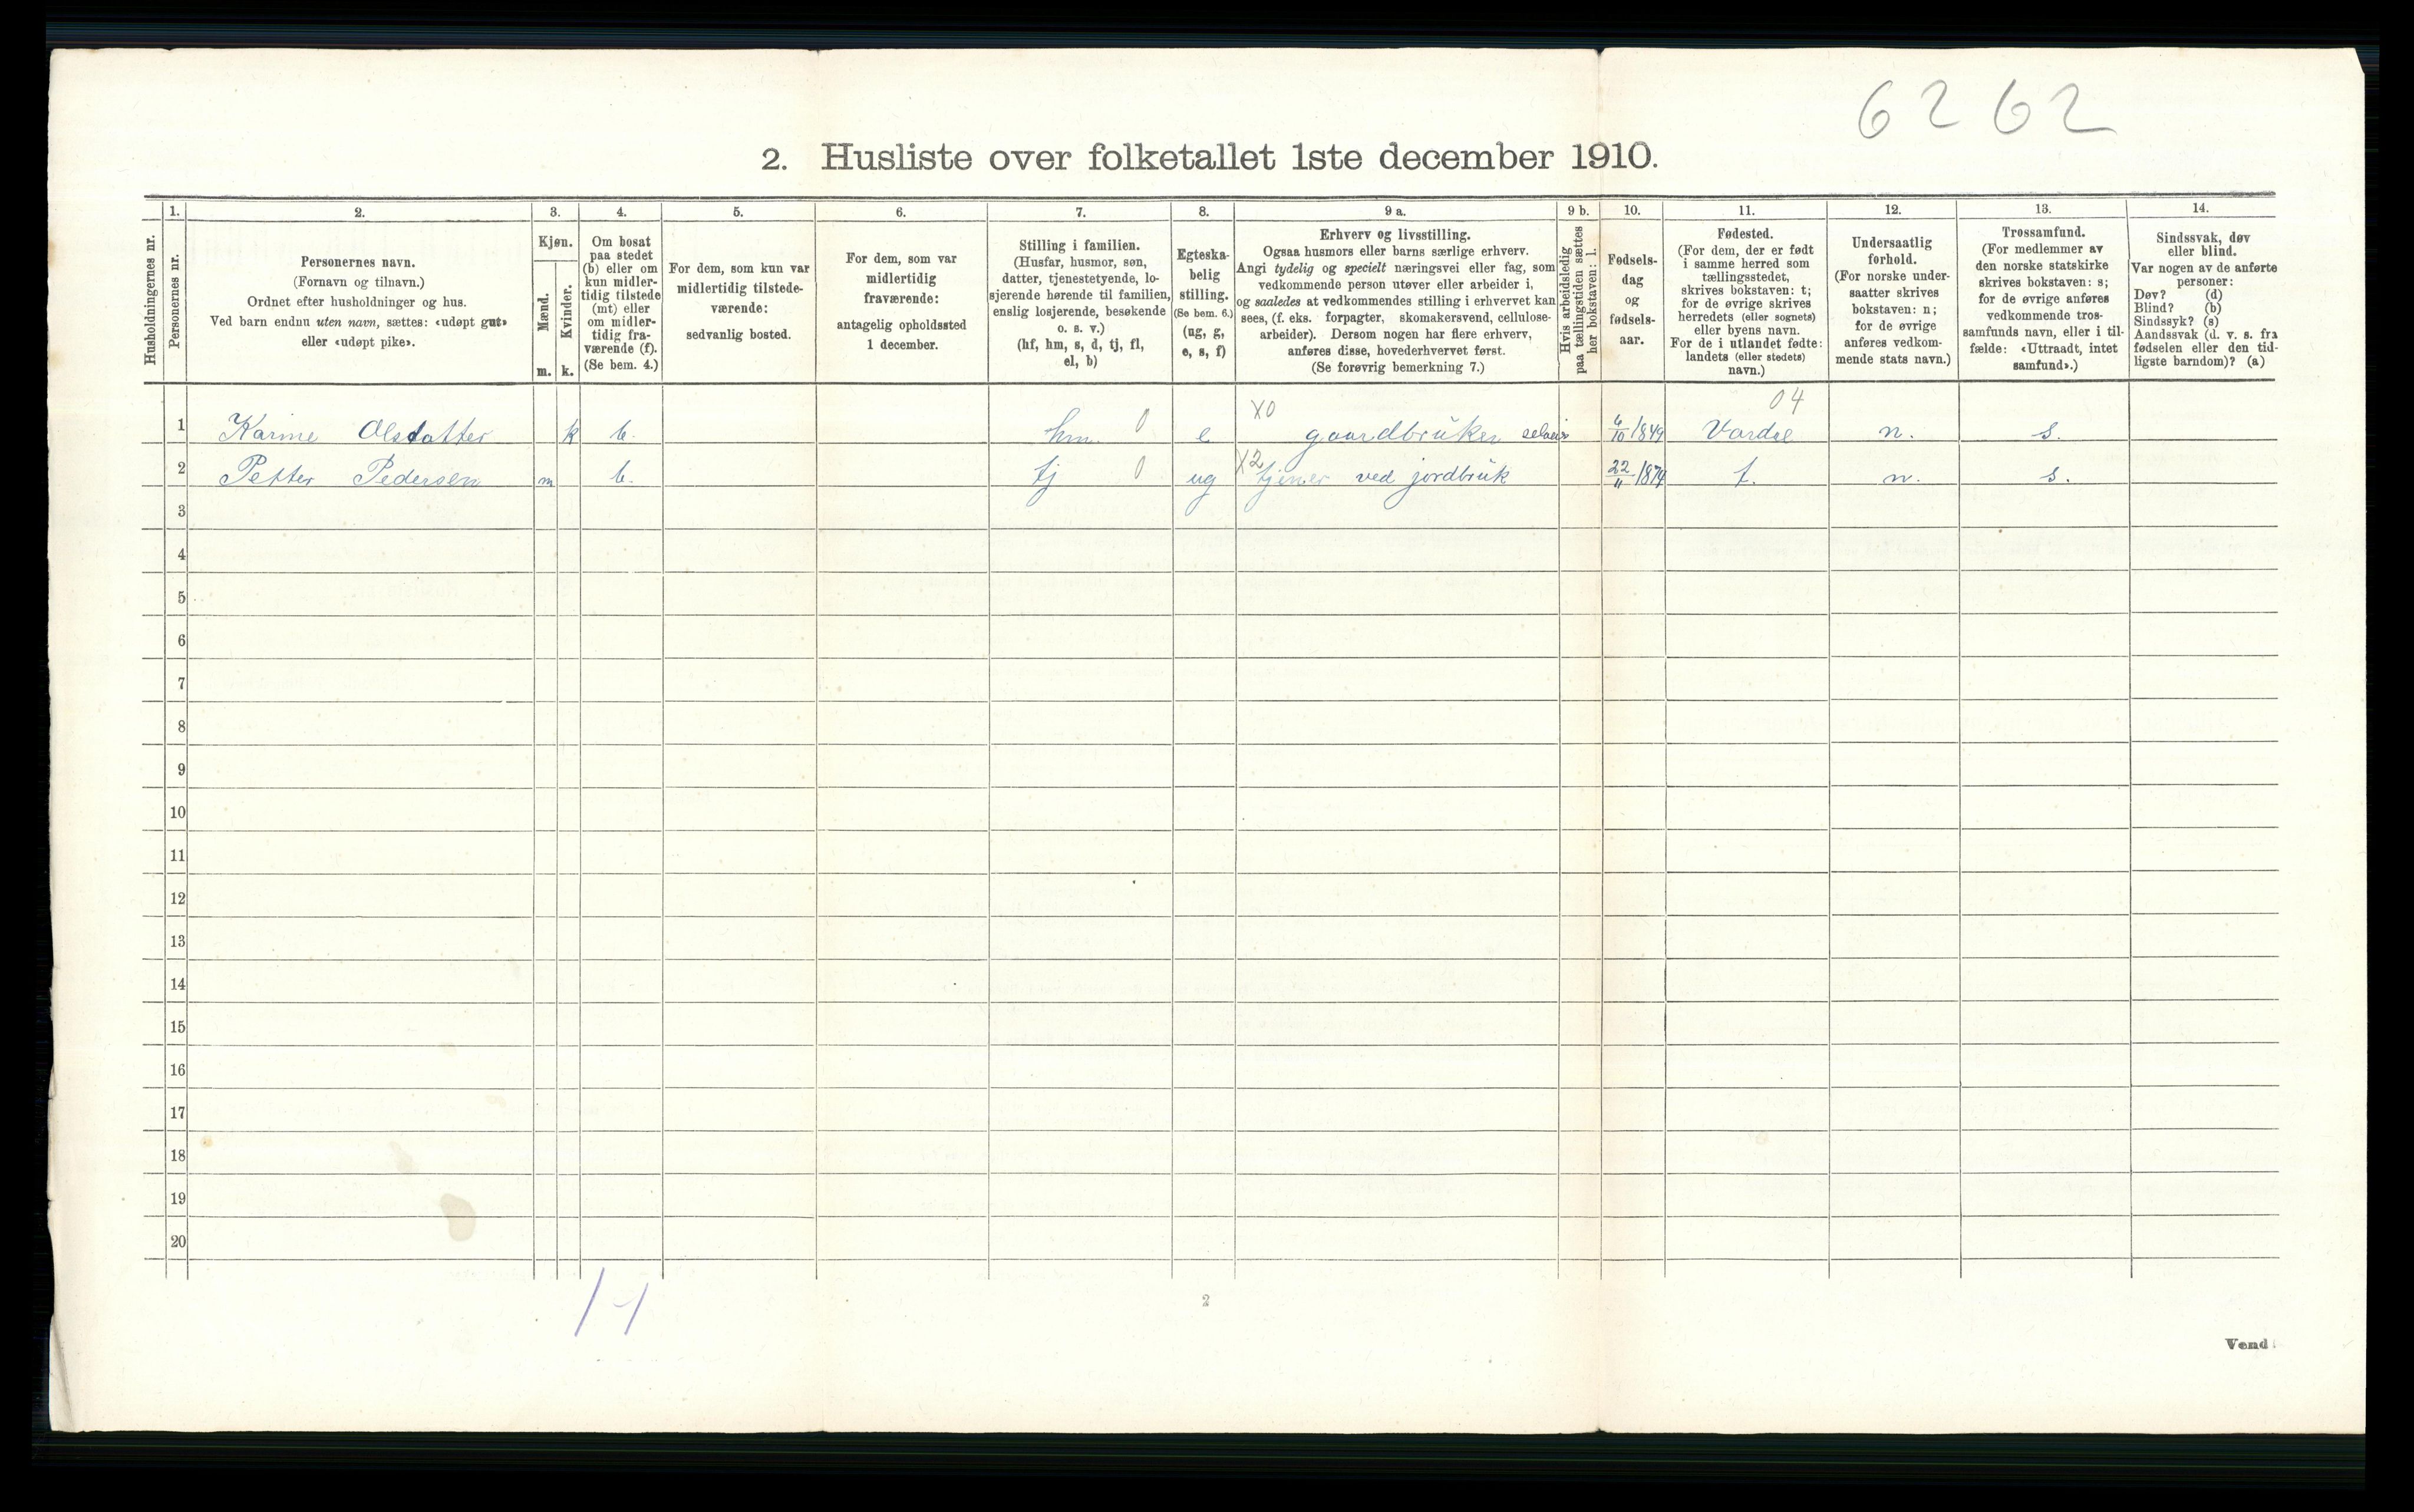 6262
2. Husliste over folketallet 1ste december 1910.
1. 2. 3. 4. 5. 6. 7. 8. 9 a. 9 b. 10. 11. 12. 13. 14.
Husholdningernes nr.
Personernes nr.
Personernes navn.
(Fornavn og tilnavn.)
Ordnet efter husholdninger og hus.
Ved barn endnu uten navn, sættes: «udøpt gut»
eller «udøpt pike».
Kjøn.
Mænd.
Kvinder.
m. k.
Om bosat
paa stedet
(b) eller om
kun midler-
tidig tilstede
(mt) eller
om midler-
tidig fra-
værende (f).
(Se bem. 4.)
For dem, som kun var
midlertidig tilstede-
værende:
sedvanlig bosted.
For dem, som var
midlertidig
fraværende:
antagelig opholdssted
1 december.
Stilling i familien.
(Husfar, husmor, søn,
datter, tjenestetyende, lo-
sjerende hørende til familien,
enslig losjerende, besøkende
o. s. v.)
(hf, hm, s, d, tj, fl,
el, b)
Egteska-
belig
stilling.
(Se bem. 6.)
(ug, g,
e, s, f)
Erhverv og livsstilling.
Ogsaa husmors eller barns særlige erhverv.
Angi tydelig og specielt næringsvei eller fag, som
vedkommende person utøver eller arbeider i,
og saaledes at vedkommendes stilling i erhvervet kan
sees, (f. eks. forpagter, skomakersvend, cellulose-
arbeider). Dersom nogen har flere erhverv,
anføres disse, hovederhvervet først.
(Se forøvrig bemerkning 7.)
Hvis arbeidsledig
paa tællingstiden sættes
her bokstaven: l.
Fødsels-
dag
og
fødsels-
aar.
Fødested.
(For dem, der er født
i samme herred som
tællingsstedet,
skrives bokstaven: t;
for de øvrige skrives
herredets (eller sognets)
eller byens navn.
For de i utlandet fødte:
landets (eller stedets)
navn.)
Undersaatlig
forhold.
(For norske under-
saatter skrives
bokstaven: n;
for de øvrige
anføres vedkom-
mende stats navn.)
Trossamfund.
(For medlemmer av
den norske statskirke
skrives bokstaven: s;
for de øvrige anføres
vedkommende tros-
samfunds navn, eller i til-
fælde: «Uttraadt, intet
samfund».)
Sindssvak, døv
eller blind.
Var nogen av de anførte
personer:
Døv? (d)
Blind? (b)
Sindssyk? (s)
Aandssvak (d. v. s. fra
fødselen eller den tid-
ligste barndom)? (a)
X0 04
1 Karine Olsdatter k b. hm. 0 e gaardbruker 6/10 1849 Vardal n. s.
2 Petter Pedersen m b. tj 0 ug X2 tjener ved jordbruk 22/11 1874 t. n. s.
3
4
5
6
7
8
9
10
11
12
13
14
15
16
17
18
19
20
1 1
2
Vend